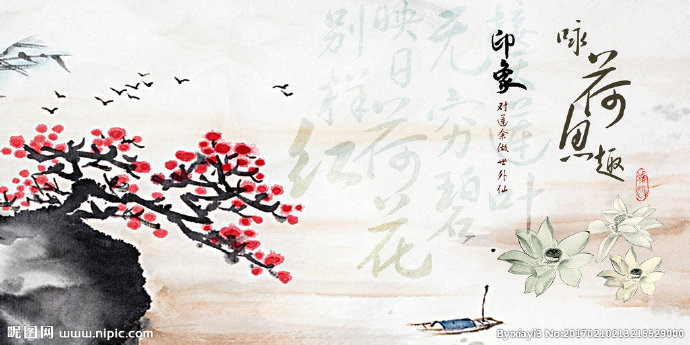 咏荷思趣
印象
对莲余做世外仙
接天莲叶
无穷碧
映日荷花
别样红
昵图网 www.nipic.com
By:xiayi3 No:20170210213215529000